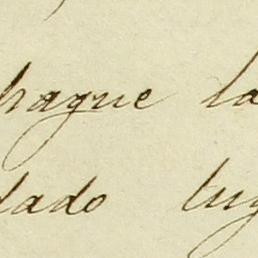 hague la
dado lug